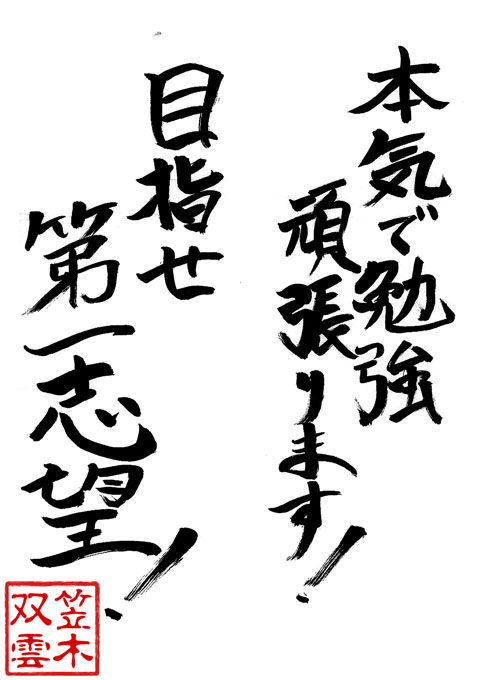 本気で勉強
頑張ります!
目指せ
第一志望!
笠木
双雲